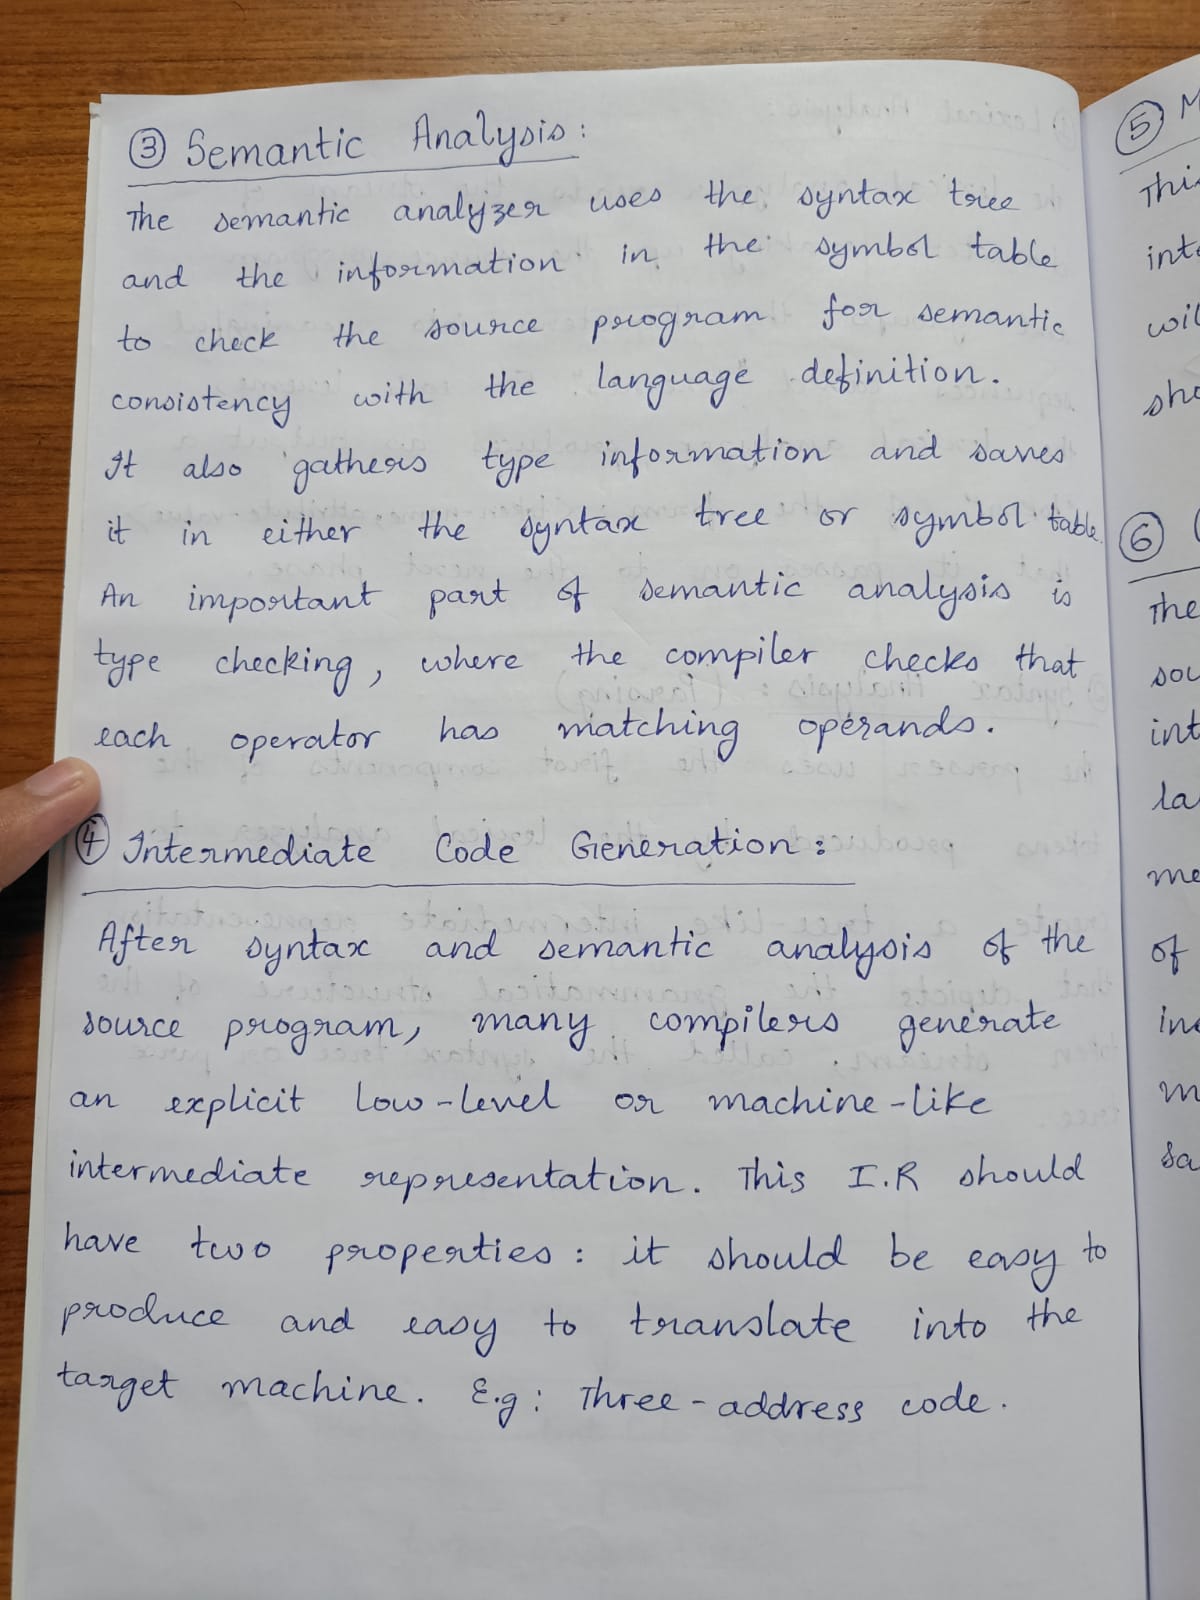 ③ Semantic Analysis:
The semantic analyzer uses the syntax tree
and the information in the symbol table
to check the source program for semantic
consistency with the language definition.
It also gathers type information and saves
it in either the syntax tree or symbol table.
An important part of semantic analysis is
type checking, where the compiler checks that
each operator has matching operands.
④ Intermediate Code Generation:
After syntax and semantic analysis of the
source program, many compilers generate
an explicit low-level or machine-like
intermediate representation. This I.R should
have two properties: it should be easy to
produce and easy to translate into the
target machine. E.g: Three-address code.
⑤
⑥
The
of